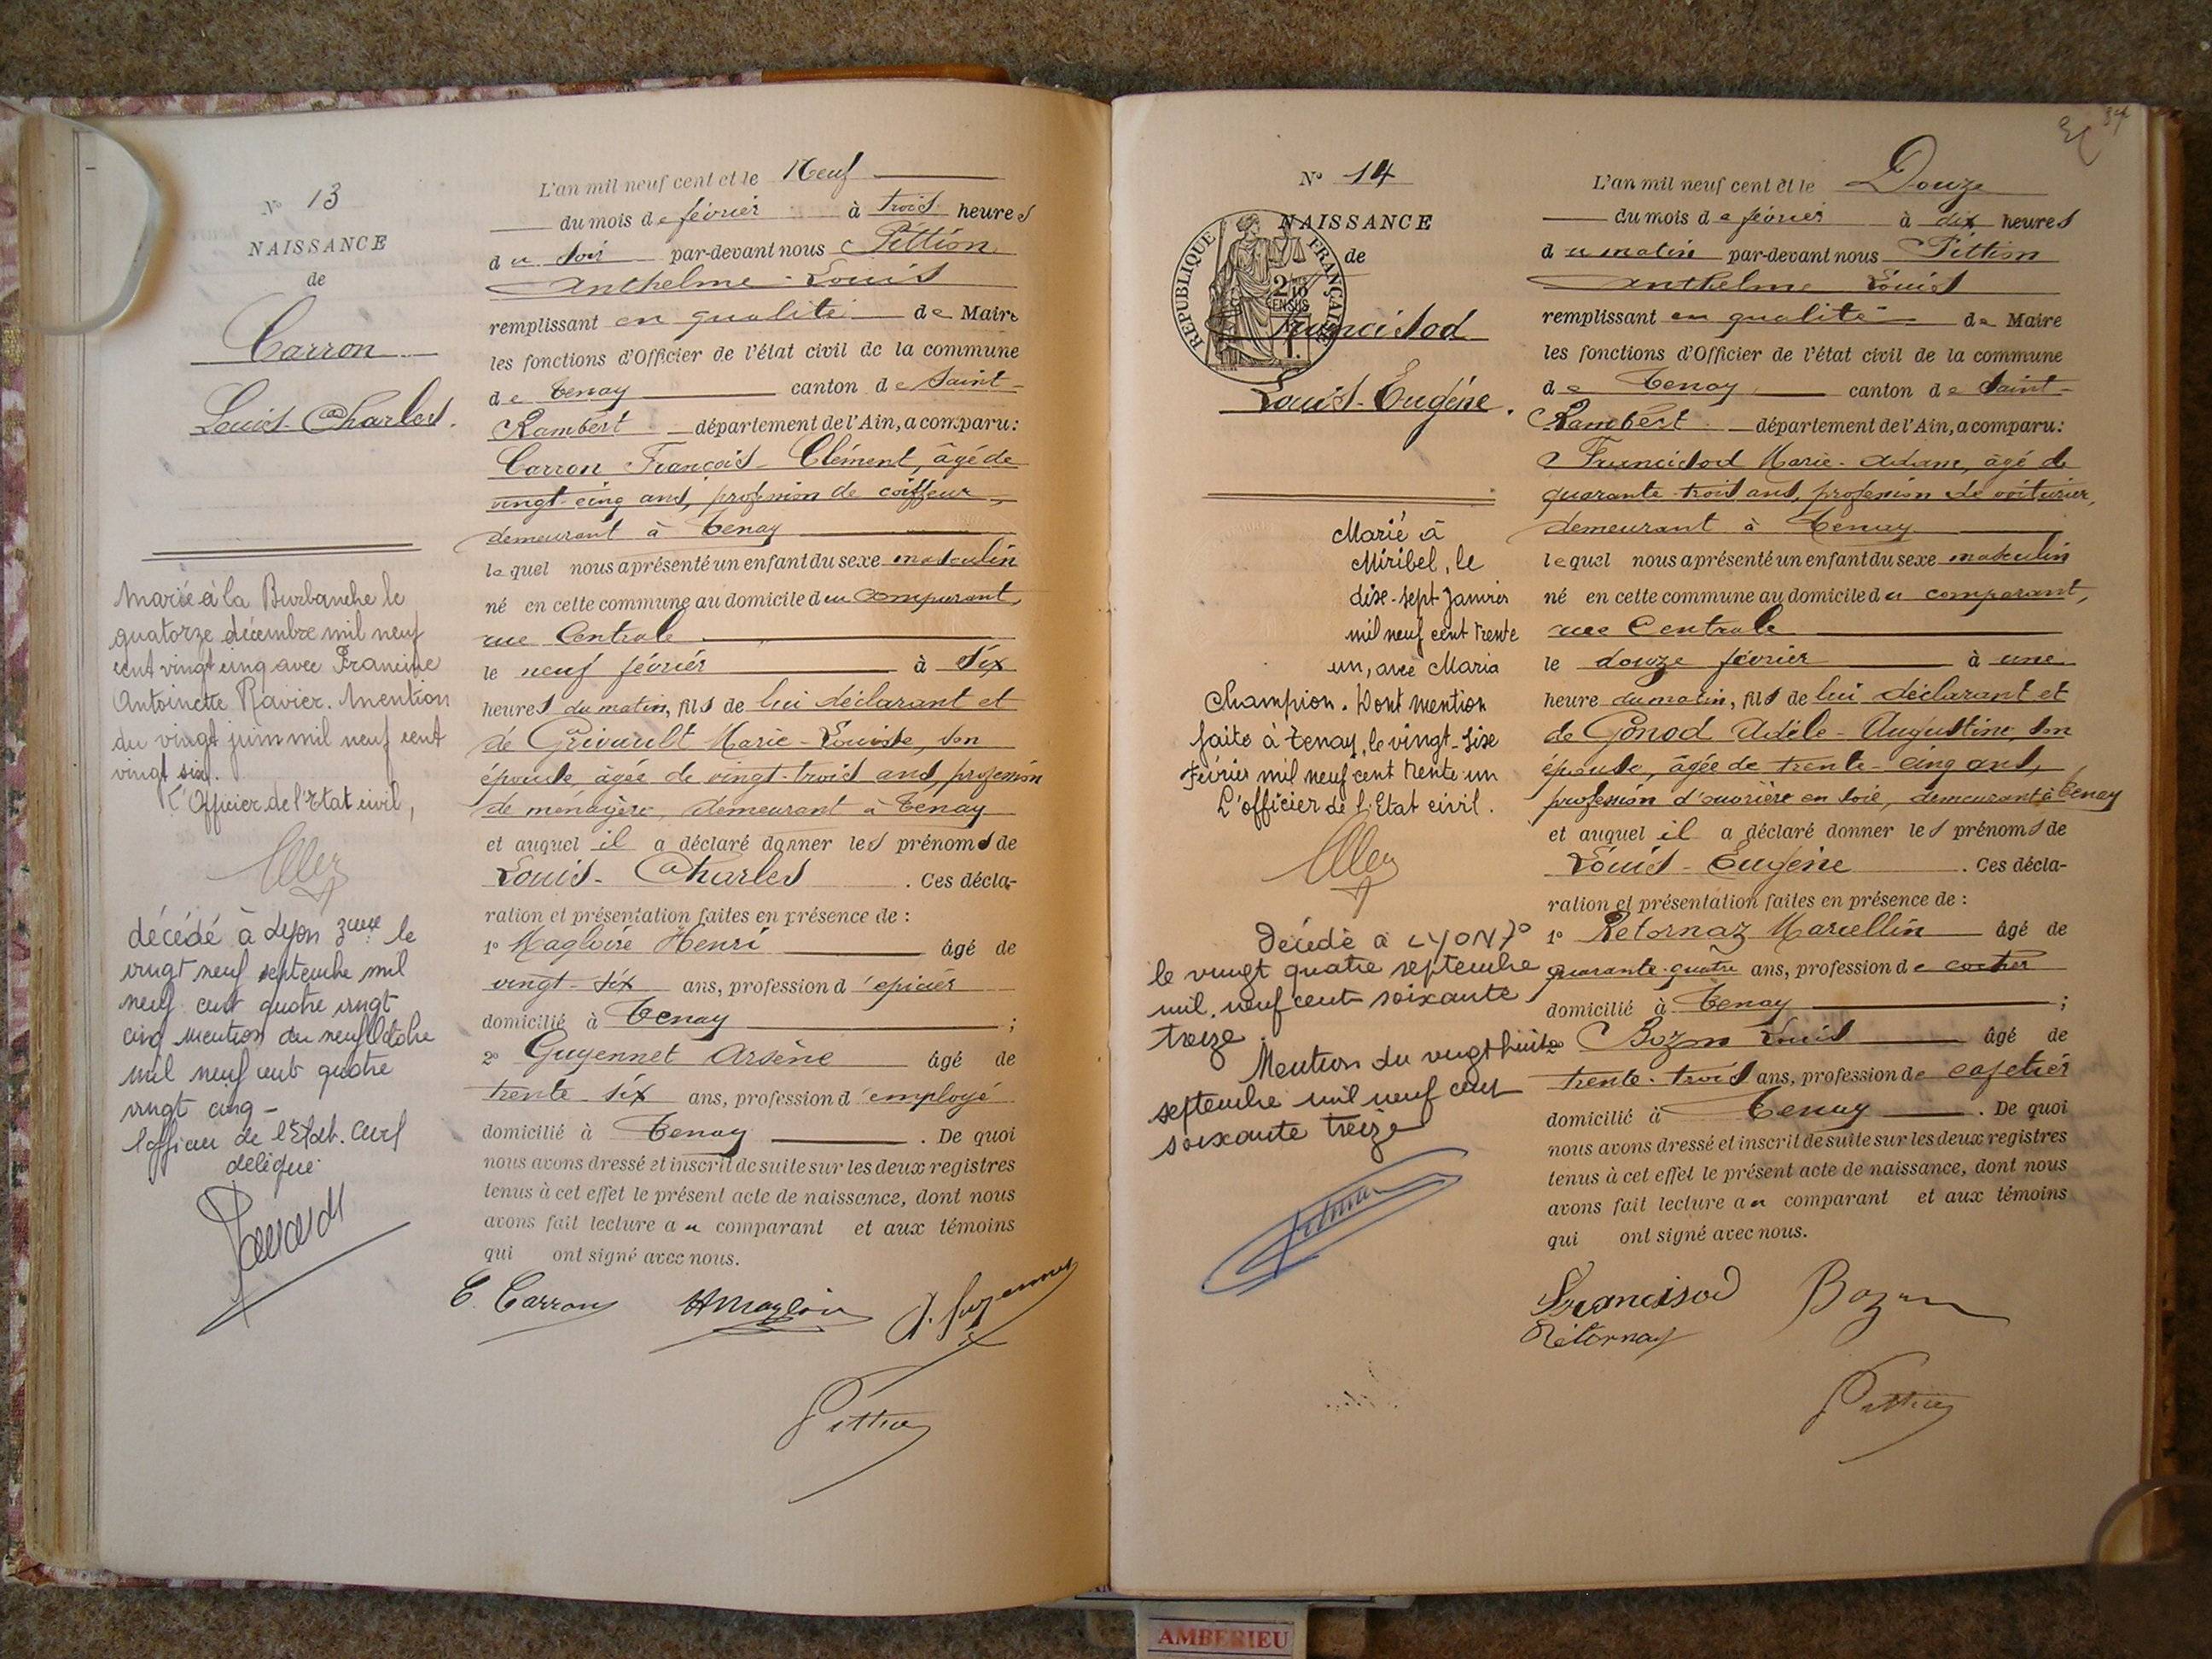 N° 13
NAISSANCE
de
Carron
Louis-Charles.
Marié à la Burbanche le
quatorze décembre mil neuf
cent vingt cinq avec Francine
Antoinette Ravier. Mention
du vingt juin mil neuf cent
vingt six.
L'Officier de l'Etat civil,
décédé à Lyon 3eme le
vingt neuf septembre mil
neuf cent quatre vingt
cinq Mention du neuf Octobre
mil neuf cent quatre
vingt cinq -
l'officier de l'Etat. Civil
délégué
L'an mil neuf cent et le Neuf
du mois de février à trois heures
du soir par-devant nous Pittion
Anthelme-Louis
remplissant en qualité de Maire
les fonctions d'Officier de l'état civil de la commune
de Tenay canton de Saint-
Rambert département de l'Ain, a comparu:
Carron François-Clément, âgé de
vingt-cinq ans, profession de coiffeur,
demeurant à Tenay
lequel nous a présenté un enfant du sexe masculin
né en cette commune au domicile du comparant,
rue Centrale
le neuf février à six
heures du matin, fils de lui déclarant et
de Grivault Marie-Louise, son
épouse, âgée de vingt-trois ans, profession
de ménagère, demeurant à Tenay
et auquel il a déclaré donner les prénoms de
Louis-Charles . Ces décla-
ration et présentation faites en présence de :
1° Magloire Henri âgé de
vingt-six ans, profession d'épicier
domicilié à Tenay ;
2° Guyennet Arsène âgé de
trente six ans, profession d'employé
domicilié à Tenay . De quoi
nous avons dressé et inscrit de suite sur les deux registres
tenus à cet effet le présent acte de naissance, dont nous
avons fait lecture au comparant et aux témoins
qui ont signé avec nous.
C. Carron HMagloire A. Guyennet
Pittion
N° 14
NAISSANCE
de
RÉPUBLIQUE FRANÇAISE
2/10
EN SUS
Francisod
Louis-Eugène.
Marié à
Miribel, le
dixe-sept Janvier
mil neuf cent trente
un, avec Maria
Champion. Dont mention
faite à Tenay, le vingt-sixe
Février mil neuf cent trente un
L'officier de l'Etat civil.
Décédé à LYON 7°
le vingt quatre septembre
mil neuf cent soixante
treize.
Mention du vingt huit
septembre mil neuf cent
soixante treize
L'an mil neuf cent et le Douze
du mois de février à dix heures
du matin par-devant nous Pittion
Anthelme Louis
remplissant en qualité de Maire
les fonctions d'Officier de l'état civil de la commune
de Tenay canton de Saint-
Rambert département de l'Ain, a comparu:
Francisod Marie-Adam, âgé de
quarante-trois ans, profession de voiturier,
demeurant à Tenay
lequel nous a présenté un enfant du sexe masculin
né en cette commune au domicile du comparant,
rue Centrale
le douze février à une
heure du matin, fils de lui déclarant et
de Gonod Adèle-Augustine, son
épouse, âgée de trente-cinq ans,
profession d'ouvrière en soie, demeurant à Tenay
et auquel il a déclaré donner les prénoms de
Louis-Eugène . Ces décla-
ration et présentation faites en présence de :
1° Retornaz Marcellin âgé de
quarante-quatre ans, profession de cocher
domicilié à Tenay ;
2° Bozon Louis âgé de
trente-trois ans, profession de cafetier
domicilié à Tenay . De quoi
nous avons dressé et inscrit de suite sur les deux registres
tenus à cet effet le présent acte de naissance, dont nous
avons fait lecture au comparant et aux témoins
qui ont signé avec nous.
Francisod Bozon
Retornaz
Pittion
AMBERIEU